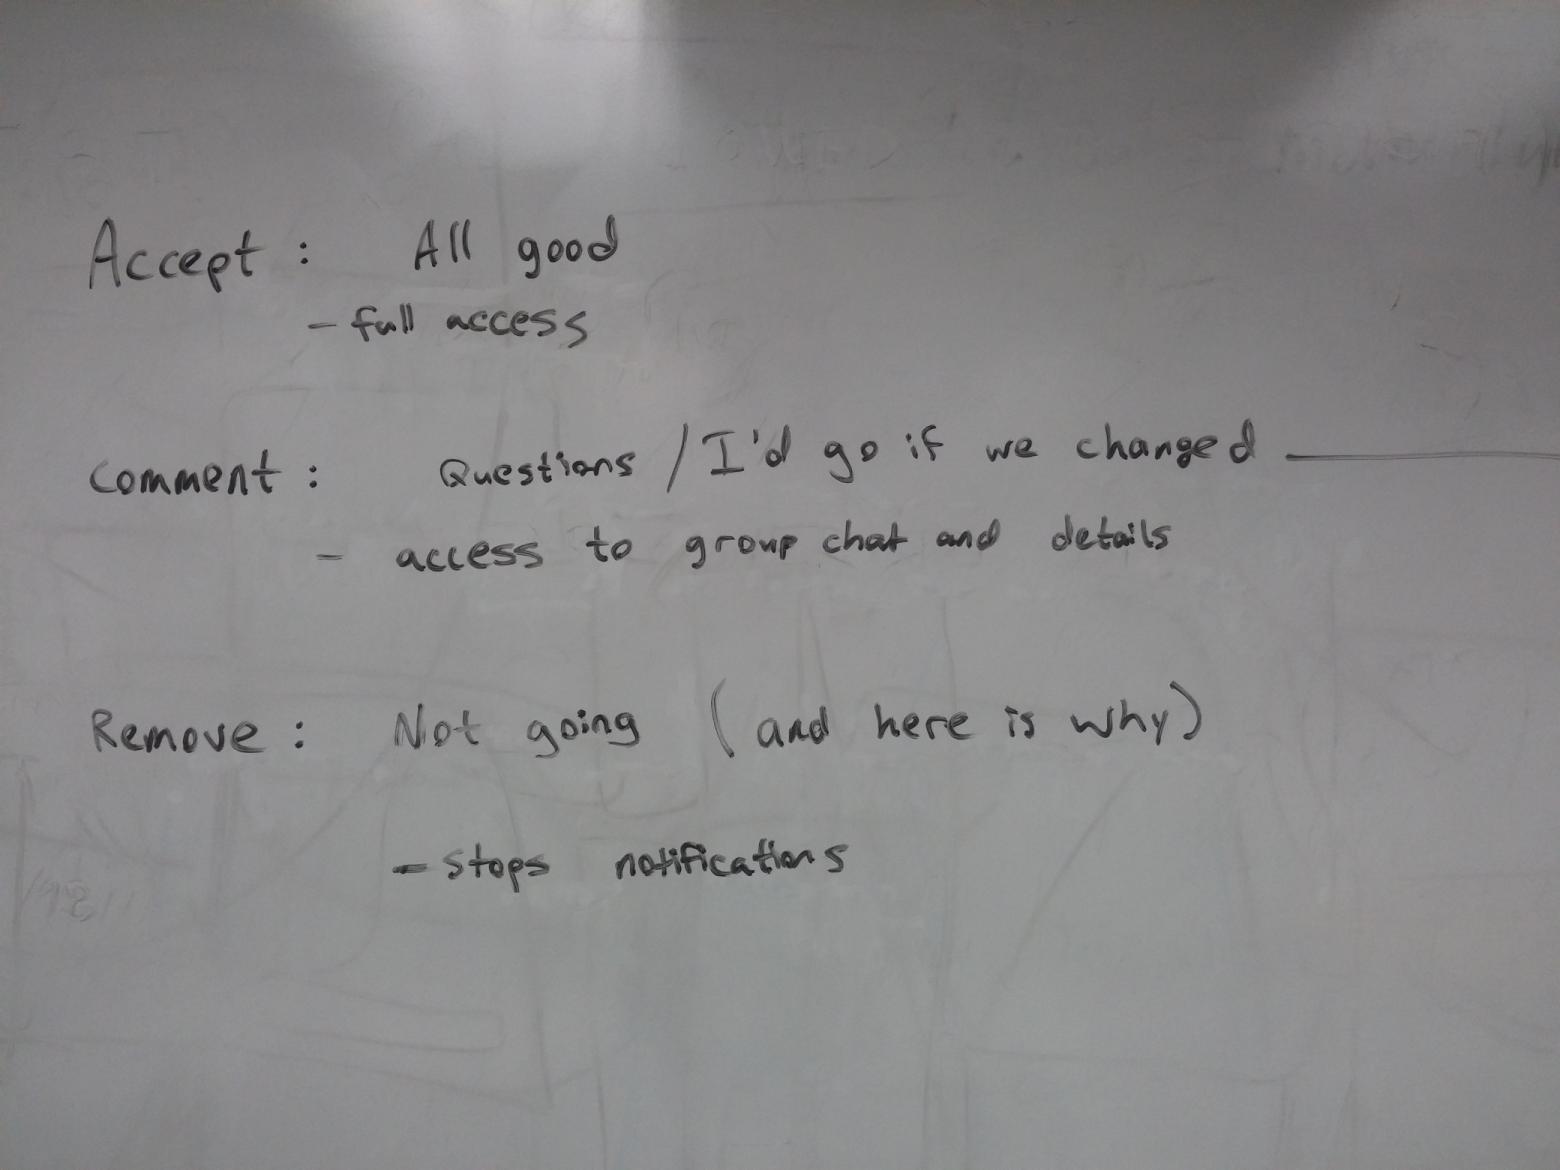 Accept : All good
- full access
Comment : Questions / I'd go if we changed ______
- access to group chat and details
Remove : Not going (and here is why)
- Stops notifications